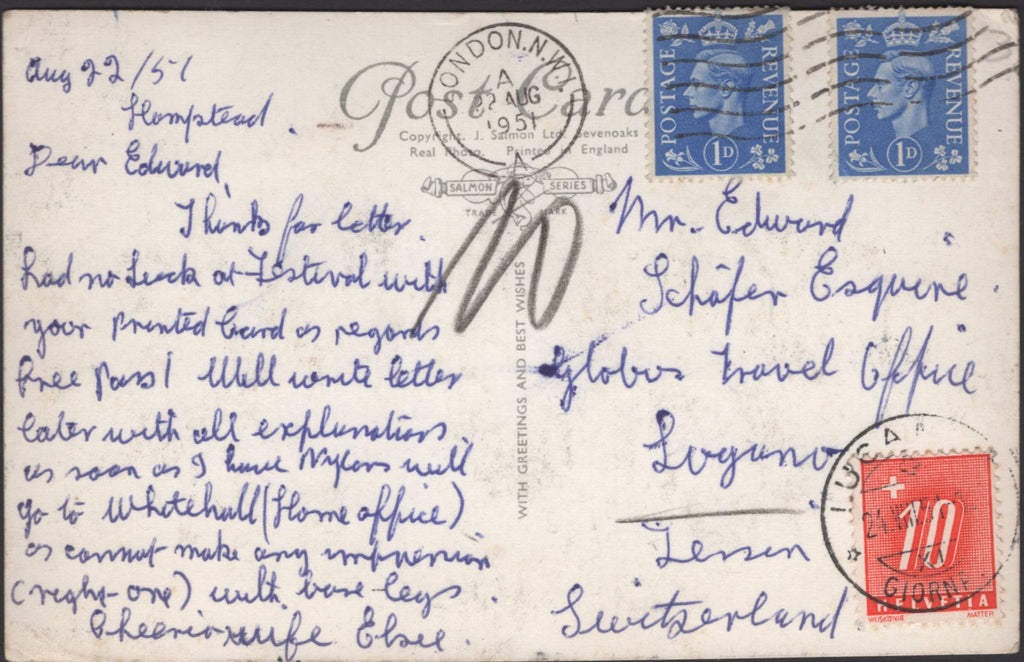 Aug 22/51
Hampstead.
Dear Edward,
Thanks for letter.
had no luck at Festival with
your printed card as regards
free pass! Will write letter
later with all explanations,
as soon as I have Nylons will
go to Whitehall (Home office)
as cannot make any impression
(right-one) with bare legs.
Cheerio Elsee.
Post Card
Copyright. J. Salmon Ltd. Sevenoaks
Real Photo. Printed in England
SALMON SERIES
TRADE MARK
WITH GREETINGS AND BEST WISHES
LONDON. N.W.
A
22 AUG
1951
10
POSTAGE REVENUE
1D
POSTAGE REVENUE
1D
Mr. Edward
Schäfer Esquire.
Globus Travel Office
Lugano
Tessin
Switzerland
LUGA
24.VIII.51
XI
GIORNE
10
HELVETIA
WEISKÖNIG MATTER